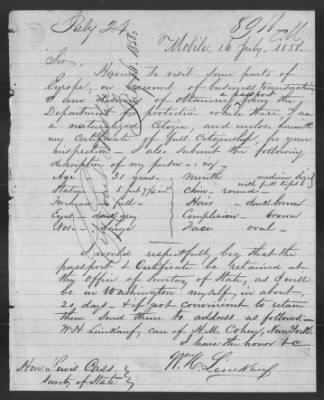 July 24
Mobile, 16 July, 1858.
Sir,
Having to visit some parts of
Europe, on account of business transactions
I am desirous of obtaining a passport from the
Department for protection while there, I am
a naturalized Citizen, and enclose herewith
my Certificate of full Citizenship, for your
inspection - I also submit the following
description of my person - viz
Age 31 years - Mouth medium size
with full lips
Stature 5 feet Chin - round -
Forehead full - Hair - dark brown
Eyes - dark grey Complexion - brown
Nose - large Face oval -
I would respectfully beg that the
passport & Certificate be retained at
the Office of Secretary of State, as I will
be in Washington myself, in about
20 days - & if not convenient to retain
them send them to address as follows. -
WH Leinkauf, care of H.M. Cohen, New York.
I have the honor &c
Wm H. Leinkauf
Hon Lewis Cass
Secrty of State